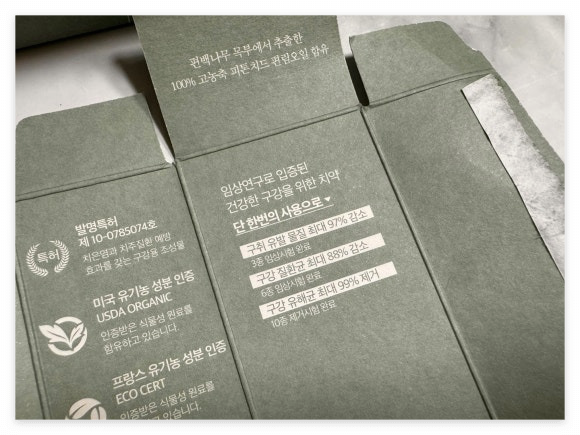 편백나무 목부에서 추출한
100% 고농축 피톤치드 편림오일 함유
특허
발명특허
제 10-0785074호
치은염과 치주질환 예방
효과를 갖는 구강용 조성물
미국 유기농 성분 인증
USDA ORGANIC
인증받은 식물성 원료를
함유하고 있습니다.
프랑스 유기농 성분 인증
ECO CERT
인증받은 식물성 원료를
고 있습니다.
임상연구로 입증된
건강한 구강을 위한 치약
단 한번의 사용으로
구취 유발 물질 최대 97% 감소
3종 임상시험 완료
구강 질환균 최대 88% 감소
6종 임상시험 완료
구강 유해균 최대 99% 제거
10종 제거시험 완료